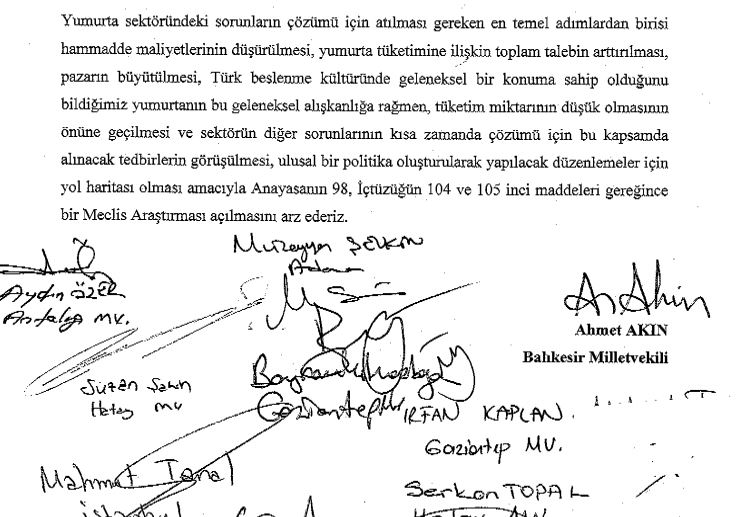 Yumurta sektöründeki sorunların çözümü için atılması gereken en temel adımlardan birisi
hammadde maliyetlerinin düşürülmesi, yumurta tüketimine ilişkin toplam talebin arttırılması,
pazarın büyütülmesi, Türk beslenme kültüründe geleneksel bir konuma sahip olduğunu
bildiğimiz yumurtanın bu geleneksel alışkanlığa rağmen, tüketim miktarının düşük olmasının
önüne geçilmesi ve sektörün diğer sorunlarının kısa zamanda çözümü için bu kapsamda
alınacak tedbirlerin görüşülmesi, ulusal bir politika oluşturularak yapılacak düzenlemeler için
yol haritası olması amacıyla Anayasanın 98, İçtüzüğün 104 ve 105 inci maddeleri gereğince
bir Meclis Araştırması açılmasını arz ederiz.
Müzeyyen ŞEVKİN
Adana
Aydın ÖZER
Antalya mv.
Ahmet AKIN
Balıkesir Milletvekili
Suzan Şahin
Hatay mv
Gaziantep
İRFAN KAPLAN
Gaziantep MV.
Mahmut Tanal
İstanbul
Serkan TOPAL
Hatay